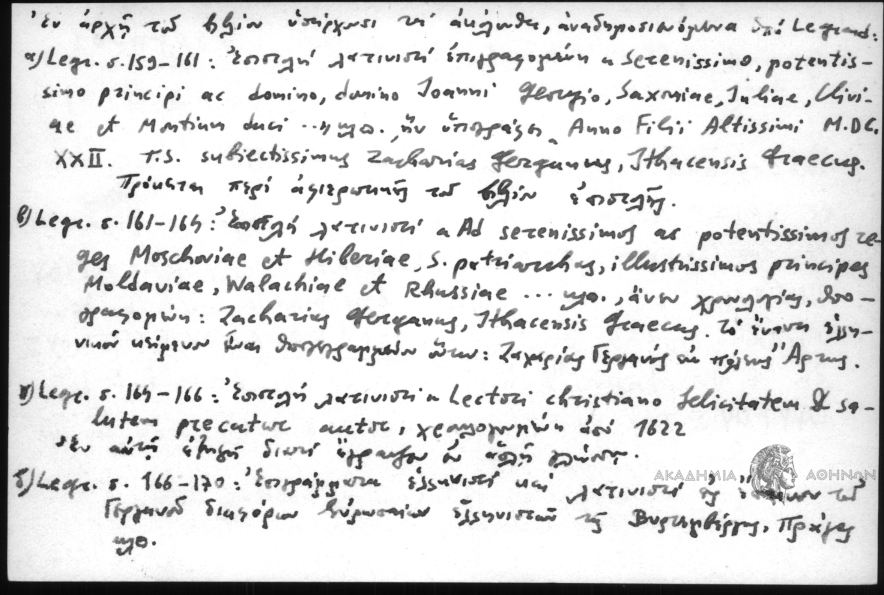 Ἐν ἀρχῇ τοῦ βιβλίου ὑπάρχουσι τὰ ἀκόλουθα, ἀναδημοσιευόμενα ὑπὸ Legrand:
α) Legr. σ. 159-161: Ἐπιστολὴ λατινιστὶ ἐπιγραφομένη «Serenissimo, potentis-
simo principi ac domino, domino Joanni Georgio, Saxoniae, Juliae, Clivi-
ae et Montium duci ...» κλπ. ἣν ὑπογράφει «Anno Filii Altissimi M.DC.
XXII. T.S. subiectissimus Zacharias Gerganus, Ithacensis Graecus.
Πρόκειται περὶ ἀφιερωτικῆς τοῦ βιβλίου ἐπιστολῆς.
β) Legr. σ. 161-164: Ἐπιστολὴ λατινιστὶ «Ad serenissimos ac potentissimos re-
ges Moschoviae et Hiberiae, S. patriarchas, illustrissimos principes
Moldaviae, Walachiae et Rhussiae ... κλπ., ἄνευ χρονολογίας, ὑπο-
γραφομένη: Zacharias Gerganus, Ithacensis Graecus. Τὸ ἔναντι ἑλλη-
νικὸν κείμενον εἶναι ὑπογεγραμμένον οὕτω: Ζαχαρίας Γεργανὸς ἐκ πόλεως Ἄρτης.
γ) Legr. σ. 164-166: Ἐπιστολὴ λατινιστὶ «Lectori christiano felicitatem & sa-
lutem precatur autor, χρονολογουμένη ἀπὸ 1622
Ἐν αὐτῇ ἐξηγεῖ διατὶ ἔγραψεν ἐν ἁπλῇ γλώσσῃ.
δ) Legr. σ. 166-170: Ἐπιγράμματα ἑλληνιστὶ καὶ λατινιστὶ εἰς ἔπαινον τοῦ
Γεργανοῦ διαφόρων Εὐρωπαίων ἑλληνιστῶν τῆς Βυρτεμβέργης, Πράγας
κλπ.
ΑΚΑΔΗΜΙΑ ΑΘΗΝΩΝ